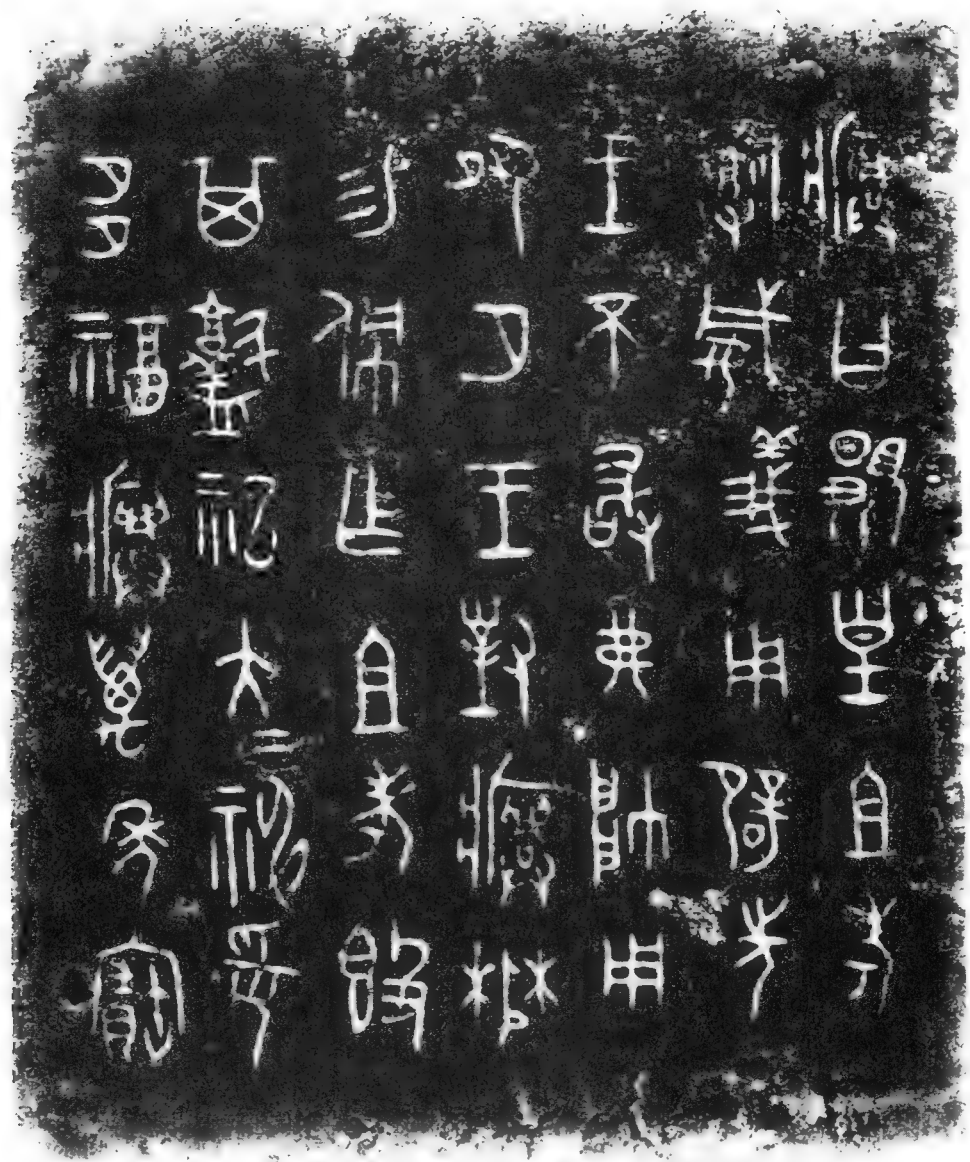 𤼈曰覭皇且考
𤔲威義用辟先
王不敢弗帥用
夙夕王對𤼈楙
易佩乍且考𣪘
其𥂴祀大=神=妥
多福𤼈萬年寶